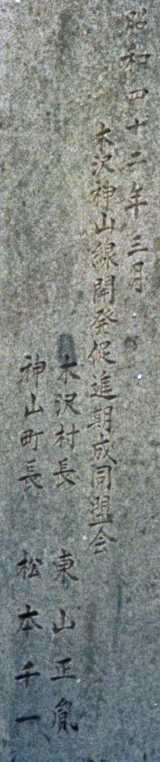 昭和四十二年三月
木沢神山線開発促進期成同盟会
木沢村長 東山正胤
神山町長 松本千一